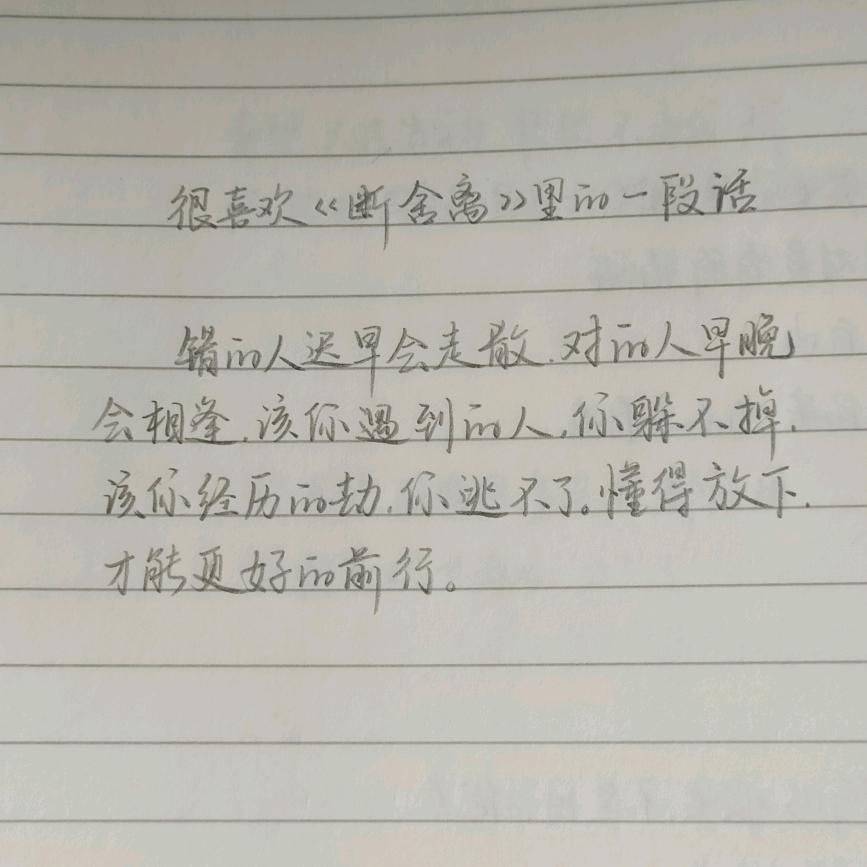 很喜欢《断舍离》里的一段话
错的人迟早会走散.对的人早晚
会相逢.该你遇到的人.你躲不掉.
该你经历的劫.你逃不了。懂得放下.
才能更好的前行。